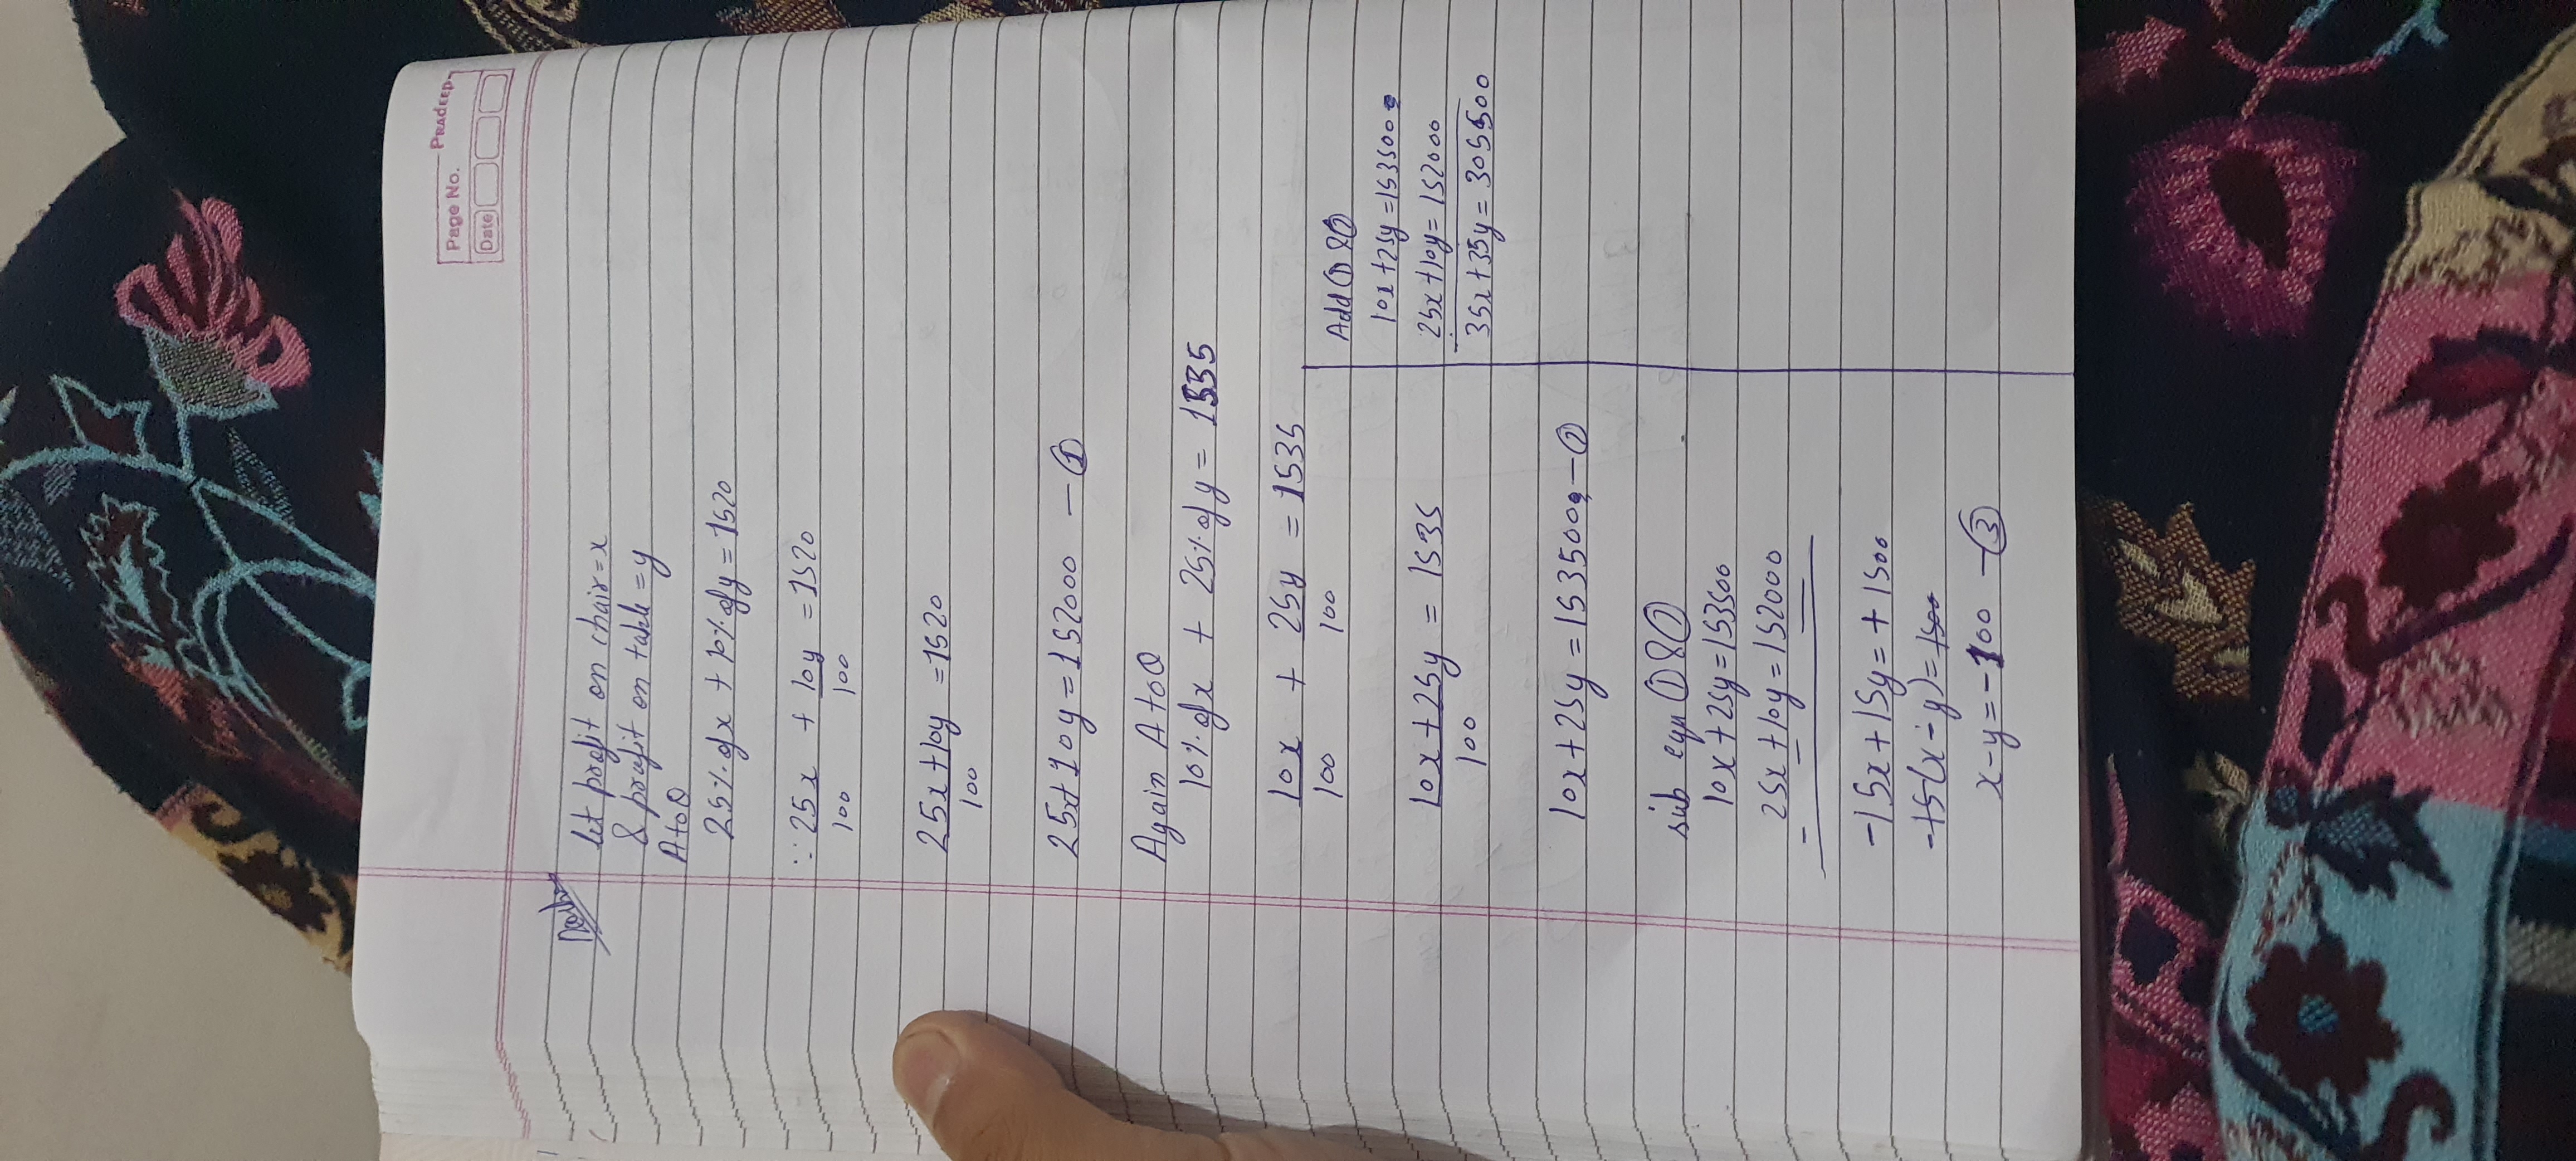 Page No.
PRADEEP
Date
let profit on chair = x
& profit on table = y
A to Q
25%. of x + 10%. of y = 1520
∵ 25x + 10y = 1520
100 100
25x+10y = 1520
100
25x+10y = 152000 — ①
Again A to Q
10%. of x + 25%. of y = 1535
10x + 25y = 1535
100 100
10x + 25y = 1535
100
10x + 25y = 153500 — ②
sub eqn ① & ②
10x + 25y = 153500
25x + 10y = 152000
- - -
-15x + 15y = + 1500
-15(x - y) = 1500
x - y = -100 — ③
Add ① & ②
10x + 25y = 153500
25x + 10y = 152000
35x + 35y = 305500